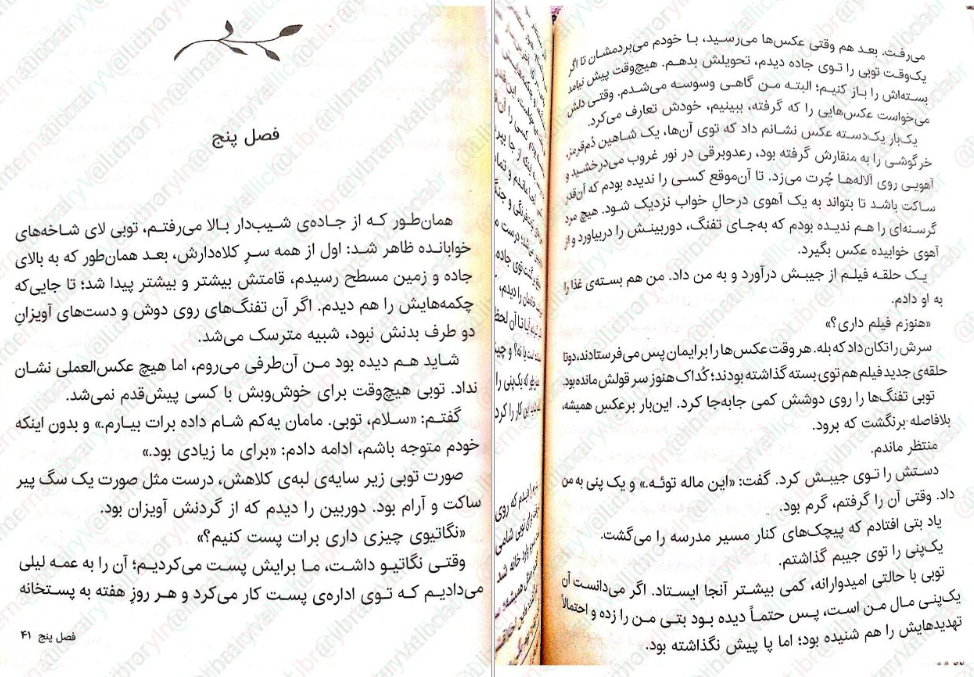 فصل پنج
همان‌طور که از جاده‌ی شیب‌دار بالا می‌رفتم، توبی لای شاخه‌های
خوابانده ظاهر شد: اول از همه سرِ کلاه‌دارش، بعد همان‌طور که به بالای
جاده و زمین مسطح رسیدم، قامتش بیشتر و بیشتر پیدا شد؛ تا جایی‌که
چکمه‌هایش را هم دیدم. اگر آن تفنگ‌های روی دوش و دست‌های آویزانِ
دو طرف بدنش نبود، شبیه مترسک می‌شد.
شاید هم دیده بود من آن‌طرفی می‌روم، اما هیچ عکس‌العملی نشان
نداد. توبی هیچ‌وقت برای خوش‌وبش با کسی پیش‌قدم نمی‌شد.
گفتم: «سلام، توبی. مامان یه‌کم شام داده برات بیارم.» و بدون اینکه
خودم متوجه باشم، ادامه دادم: «برای ما زیادی بود.»
صورت توبی زیر سایه‌ی لبه‌ی کلاهش، درست مثل صورت یک سگ پیر
ساکت و آرام بود. دوربین را دیدم که از گردنش آویزان بود.
«نگاتیوی چیزی داری برات پست کنیم؟»
وقتی نگاتیو داشت، ما برایش پست می‌کردیم؛ آن را به عمه لیلی
می‌دادیم که توی اداره‌ی پست کار می‌کرد و هر روزِ هفته به پستخانه
فصل پنج ۴۱
می‌رفت. بعد هم وقتی عکس‌ها می‌رسید، با خودم می‌بردمشان تا اگر
یک‌وقت توبی را توی جاده دیدم، تحویلش بدهم. هیچ‌وقت پیش نیامد
بسته‌اش را باز کنیم؛ البته من گاهی وسوسه می‌شدم. وقتی دلش
می‌خواست عکس‌هایی را که گرفته، ببینیم، خودش تعارف می‌کرد.
یک‌بار یک‌دسته عکس نشانم داد که توی آن‌ها، یک شاهین دُم‌قرمز،
خرگوشی را به منقارش گرفته بود، رعدوبرقی در نور غروب می‌درخشید و
آهویی روی آلاله‌ها چُرت می‌زد. تا آن‌موقع کسی را ندیده بودم که آن‌قدر
ساکت باشد تا بتواند به یک آهوی درحالِ خواب نزدیک شود. هیچ مرد
گرسنه‌ای را هم ندیده بودم که به‌جای تفنگ، دوربینش را دربیاورد و از
آهوی خوابیده عکس بگیرد.
یک حلقه فیلم از جیبش درآورد و به من داد. من هم بسته‌ی غذا را
به او دادم.
«هنوزم فیلم داری؟»
سرش را تکان داد که بله. هر وقت عکس‌ها را برایمان پس می‌فرستادند، دوتا
حلقه‌ی جدید فیلم هم توی بسته گذاشته بودند؛ کُداک هنوز سر قولش مانده بود.
توبی تفنگ‌ها را روی دوشش کمی جابه‌جا کرد. این‌بار برعکسِ همیشه،
بلافاصله برنگشت که برود.
منتظر ماندم.
دستش را توی جیبش کرد. گفت: «این ماله توئه.» و یک پنی به من
داد. وقتی آن را گرفتم، گرم بود.
یاد بتی افتادم که پیچک‌های کنار مسیر مدرسه را می‌گشت.
یک‌پنی را توی جیبم گذاشتم.
توبی با حالتی امیدوارانه، کمی بیشتر آنجا ایستاد. اگر می‌دانست آن
یک‌پنی مال من است، پس حتماً دیده بود بتی من را زده و احتمالاً
تهدیدهایش را هم شنیده بود؛ اما پا پیش نگذاشته بود.